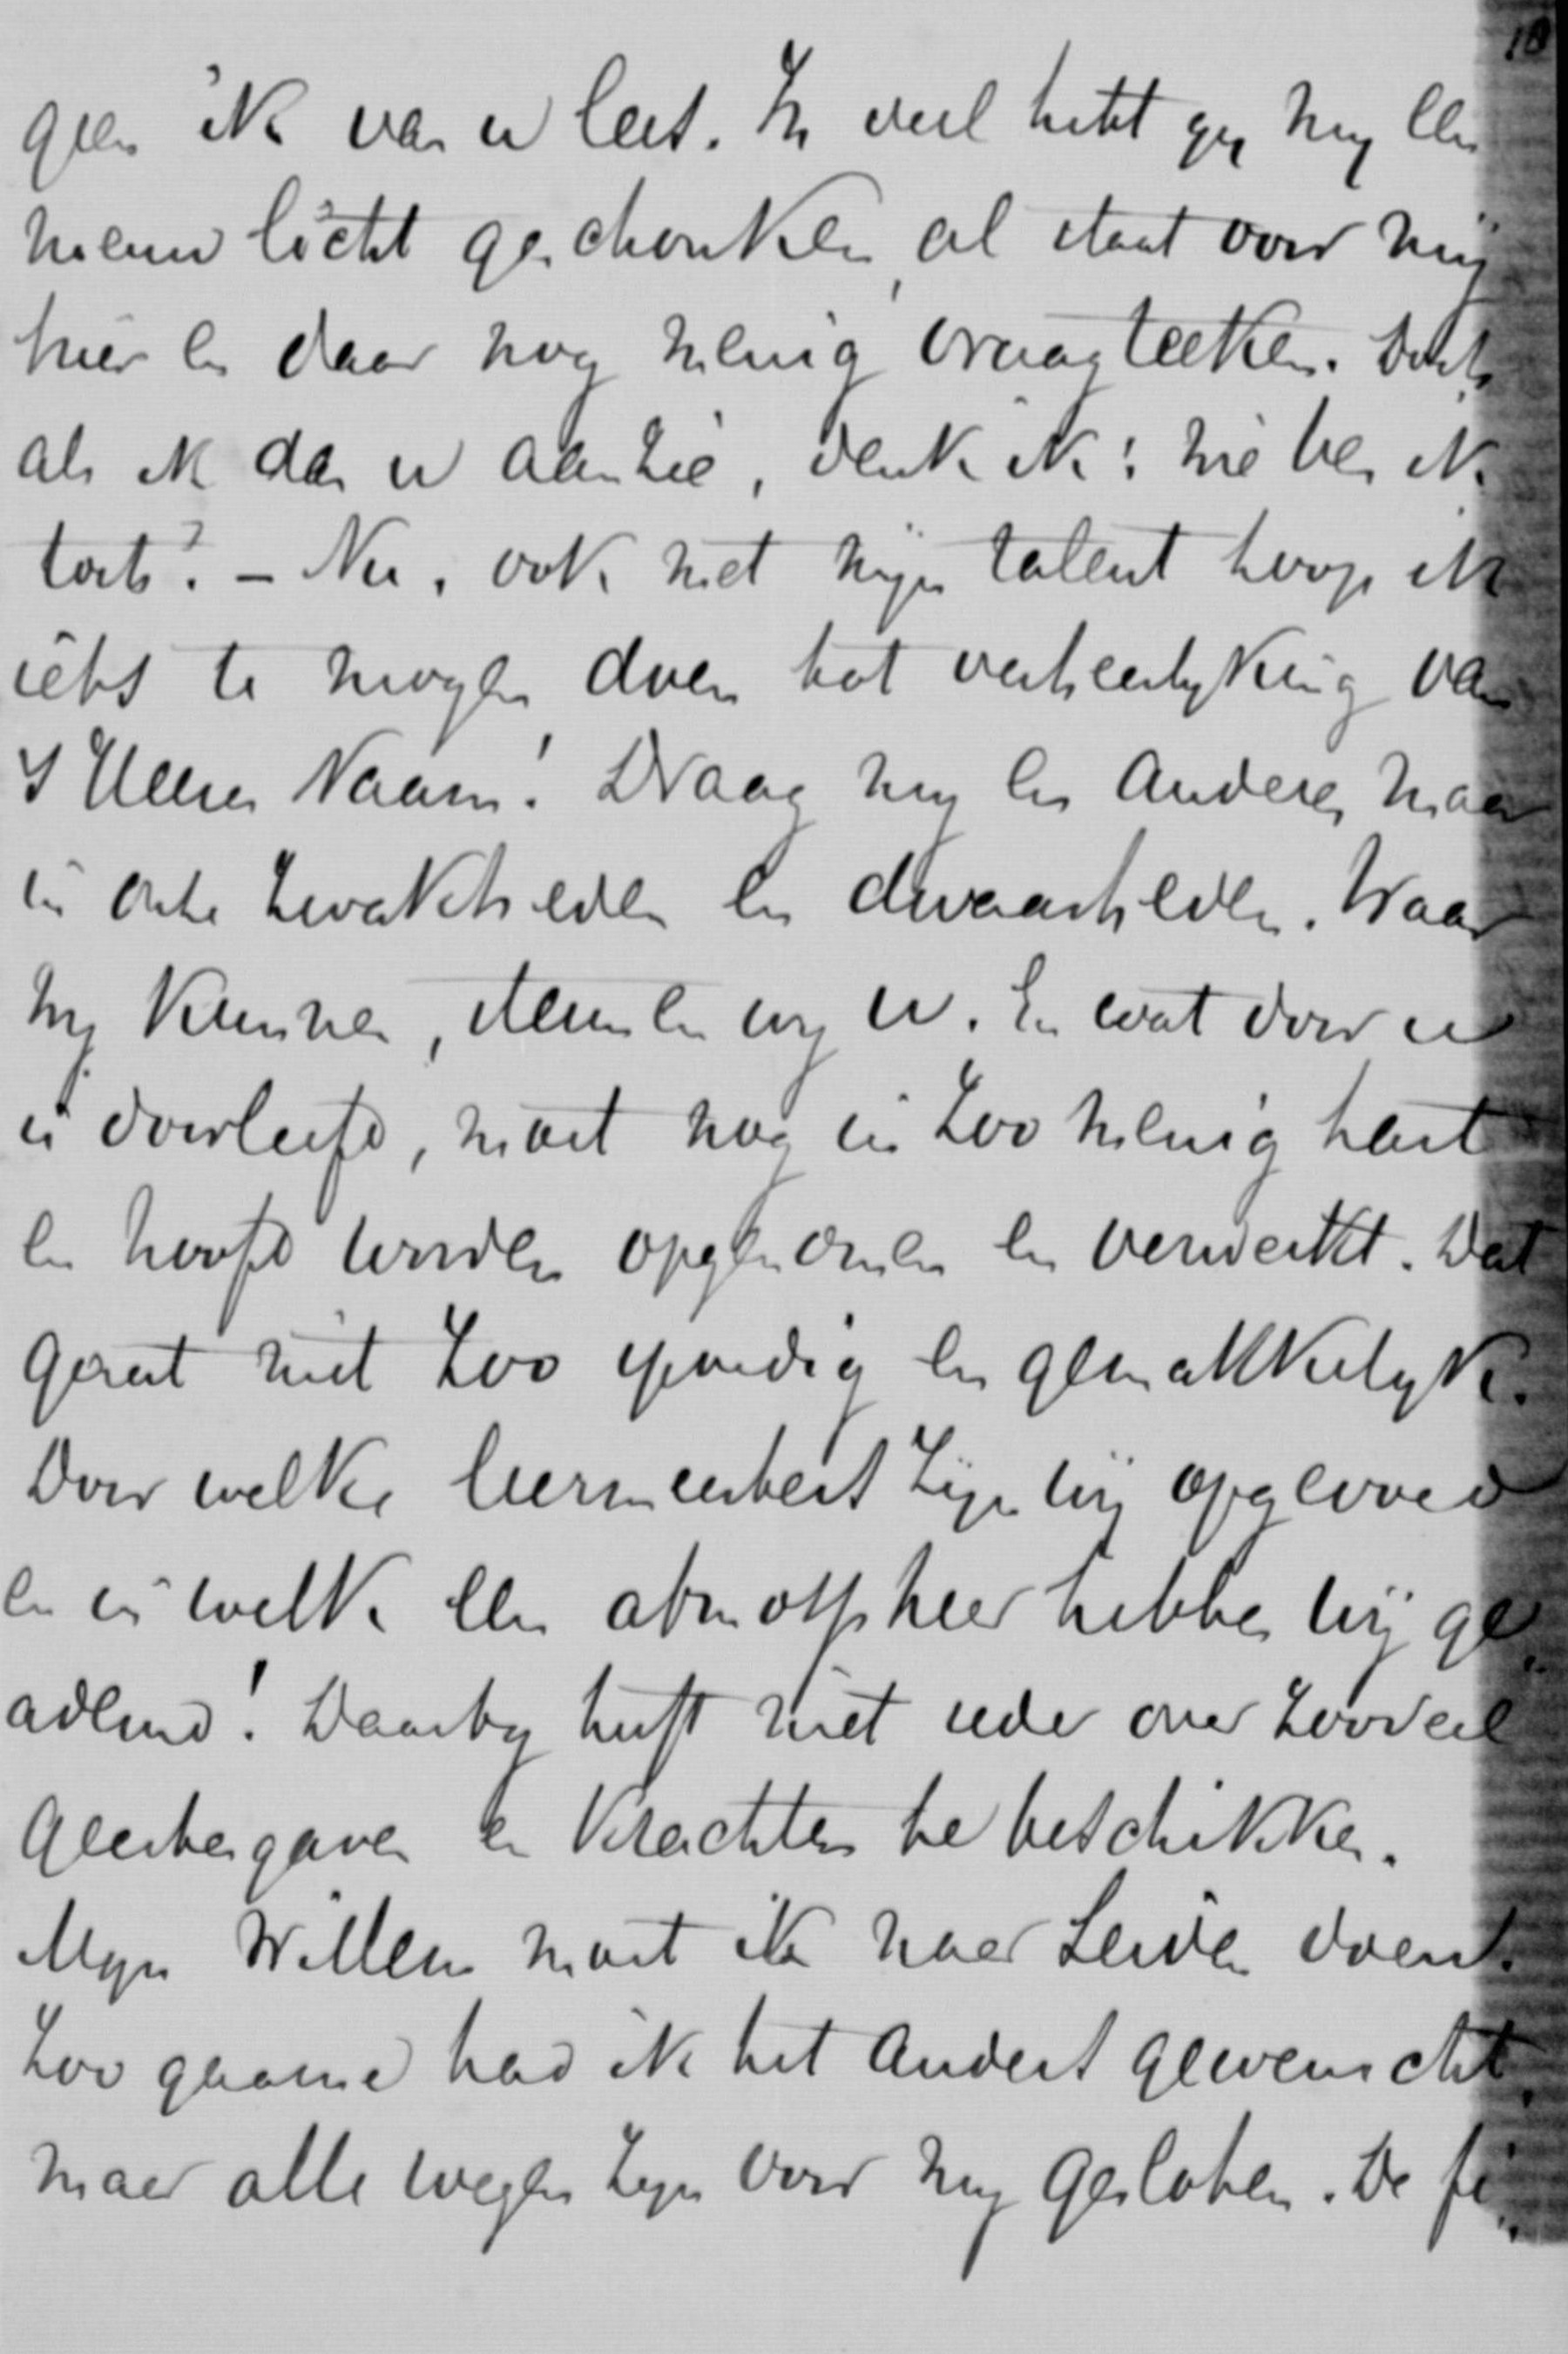 geen ik van u lees. In veel hebt gij mij een
nieuw licht geschonken, al staat voor mij
hier en daar nog menig vraagteeken. Doch
als ik dan u aanzie, denk ik: wie ben ik
toch? – Nu, ook met mijn talent hoop ik
iets te mogen doen tot verheerlyking van
's Heeren Naam! Draag mij en anderen maar
in onze zwakheden en dwaasheden. Waar
wij kunnen, steunen wij u. En wat door u
is doorleefd, moet nog in zoo menig hart
en hoofd worden opgenomen en verwerkt. Dat
gaat niet zoo spoedig en gemakkelijk.
Door welke leermeesters zijn wij opgevoed
en in welk een atmospheer hebben wij ge-
ademd! Daarby heeft niet ieder over zooveel
geestesgaven en krachten te beschikken.
Mijn Willem moet ik naar Leiden doen.
Zoo gaarne had ik het anders gewenscht,
maar alle wegen zijn voor mij gesloten. De fi-